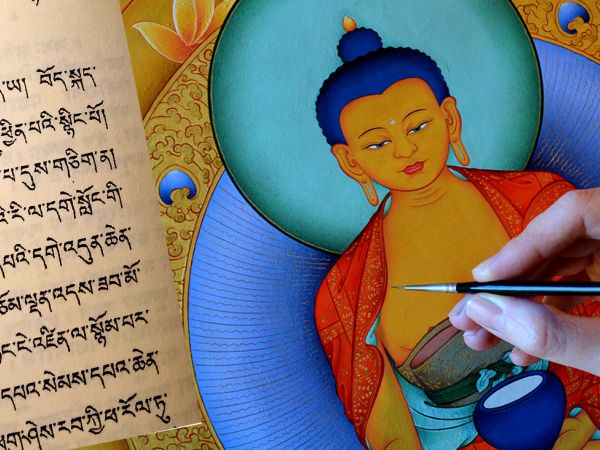 ཡ། བོད་སྐད་
ཕྱིན་པའི་སྙིང་པོ།
པ་དུས་གཅིག་ན།
རི་ལ་དགེ་སློང་གི་
དགེ་འདུན་ཆེན་
ལྡན་འདས་ཟབ་མོ་
ངེ་འཛིན་ལ་སྙོམ་པར་
དཔའ་སེམས་དཔའ་ཆེན་
ཤེས་རབ་ཀྱི་ཕ་རོལ་ཏུ་